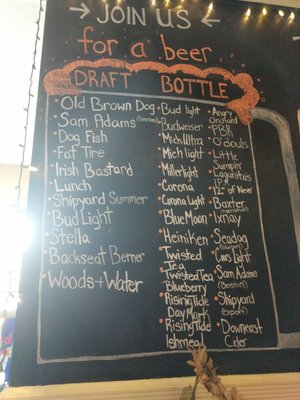 → JOIN US ←
for a beer
DRAFT BOTTLE
• Old Brown Dog
• Sam Adams (Seasonal)
• Dog Fish
• Fat Tire
• Irish Bastard
• Lunch
• Shipyard Summer
• Bud Light
• Stella
• Backseat Berner
• Woods + Water
• Bud light
• Budweiser
• Mich Ultra
• Mich light
• Miller light
• Corona
• Corona Light
• Blue Moon
• Heiniken
• Twisted
Tea
• Twisted Tea
Blueberry
• Rising Tide
Day Mark
• Rising Tide
Ishmael
• Angry
Orchard
• PBR
• O'douls
• Little
Sumpin'
• Lagunitas
IPA
• 12° of Never
• Baxter
• Ixnay
• Seadog
• Coors Light
• Sam Adams
(Boston)
• Shipyard
(Export)
• Downeast
Cider